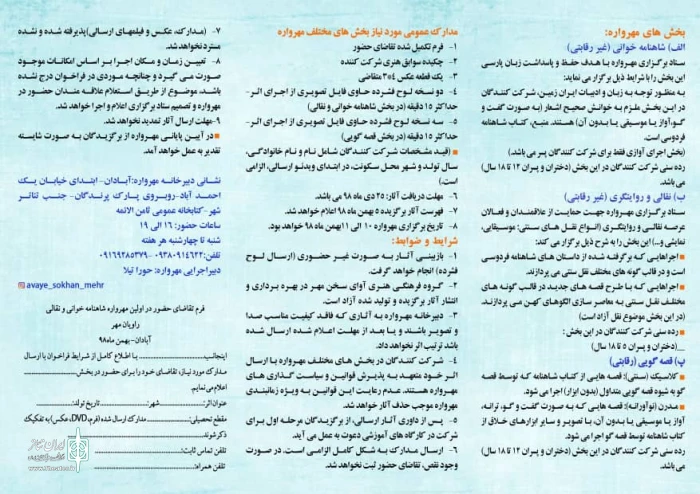 بخش های مهرواره:
الف) شاهنامه خوانی (غیر رقابتی)
ستاد برگزاری مهرواره با هدف حفظ و پاسداشت زبان پارسی
این بخش را با شرایط ذیل برگزار می نماید:
به منظور توجه به زبان و ادبیات ایران زمین، شرکت کنندگان
در این بخش ملزم به خوانش صحیح اشعار (به صورت گفت و
گو،آواز یا موسیقی یا بدون آن) هستند. منبع، کتاب شاهنامه
فردوسی است.
(بخش اجرای آوازی فقط برای شرکت کنندگان پسر می باشد).
رده سنی شرکت کنندگان در این بخش (دختران و پسران ۱۲ تا ۱۸ سال)
می باشد.
ب) نقالی و روایتگری (غیر رقابتی)
ستاد برگزاری مهرواره جهت حمایت از علاقمندان و فعالان
عرصه نقالی و روایتگری (انواع نقل های سنتی: موسیقایی،
نمایشی و...) این بخش را به شرح ذیل برگزار می کند:
اجراهایی که برگرفته شده از داستان های شاهنامه فردوسی
است و در قالب گونه های مختلف نقل سنتی می پردازند.
اجراهایی که با طرح قصه های جدید در قالب گونه های
مختلف نقل سنتی به معاصر سازی الگوهای کهن می پردازند.
(در این بخش موضوع نقل آزاد است)
رده سنی شرکت کنندگان در این بخش:
__(دختران و پسران ۵ تا ۱۸ سال)
پ) قصه گویی (رقابتی)
کلاسیک (سنتی): قصه هایی از کتاب شاهنامه که توسط قصه
گو به شیوه قصه گویی متداول (بدون ابزار) اجرا می شود.
مدرن (نوآورانه): قصه هایی که به صورت گفت و گو، ترانه،
آواز یا موسیقی یا بدون آن، با تصویر و سایر ابزارهای خلاق از
کتاب شاهنامه توسط قصه گو اجرا می شود.
رده سنی شرکت کنندگان در این بخش (دختران و پسران ۱۲ تا ۱۸ سال)
می باشد.
مدارک عمومی مورد نیاز بخش های مختلف مهرواره
۱- فرم تکمیل شده تقاضای حضور
۲- چکیده سوابق هنری شرکت کننده
۳- یک قطعه عکس ۴*۳ متقاضی
۴- دو نسخه لوح فشرده حاوی فایل تصویری از اجرای اثر-
حداکثر ۱۵ دقیقه (در بخش شاهنامه خوانی و نقالی)
۵- سه نسخه لوح فشرده حاوی فایل تصویری از اجرای اثر-
حداکثر ۱۵ دقیقه (در بخش قصه گویی)
(قید مشخصات شرکت کنندگان شامل نام و نام خانوادگی،
سال تولد و شهر محل سکونت، در ابتدای ویدئو ارسالی، الزامی
است.)
۶- مهلت دریافت آثار: ۲۵ دی ماه ۹۸ می باشد.
۷- فهرست آثار برگزیده ۵ بهمن ماه ۹۸ اعلام می گردد.
۸- تاریخ برگزاری مهرواره ۱۰ الی ۱۱ بهمن ماه ۹۸ خواهد بود.
شرایط و ضوابط:
۱- بازبینی آثار به صورت غیر حضوری (ارسال لوح
فشرده) انجام خواهد گرفت.
۲- گروه فرهنگی هنری آوای سخن مهر در بهره برداری و
انتشار آثار برگزیده و تولید شده آزاد است.
۳- دبیرخانه مهرواره به آثاری که فاقد کیفیت مناسب صدا
و تصویر باشند و یا بعد از مهلت اعلام شده ارسال شده
باشد ترتیب اثر نخواهد داد.
۴- شرکت کنندگان در بخش های مختلف مهرواره با ارسال
اثر خود متعهد به پذیرش قوانین و سیاست گذاری های
مهرواره هستند. عدم رعایت این قوانین به ویژه زمانبندی
مهرواره موجب حذف آثار خواهد شد.
۵- پس از داوری آثار ارسالی، از برگزیدگان مرحله اول برای
شرکت در کارگاه های آموزشی دعوت به عمل می آید.
۶- ارسال مدارک به شکل کامل الزامی است. در صورت
وجود نقص، تقاضای حضور ثبت نخواهد شد.
۷- (مدارک، عکس و فیلمهای ارسالی) پذیرفته شده و نشده
مسترد نخواهد شد.
۸- تعیین زمان و مکان اجرا بر اساس امکانات موجود
صورت می گیرد و چنانچه موردی در فراخوان درج نشده
باشد، موضوع از طریق استعلام علاقه مندان حضور در
مهرواره و تصمیم ستاد برگزاری اعلام و اجرا خواهد شد.
۹-مهلت ارسال آثار تمدید نخواهد شد.
در آیین پایانی مهرواره از برگزیدگان به صورت شایسته
تقدیر به عمل خواهد آمد.
نشانی دبیرخانه مهرواره:آبادان- ابتدای خیابان یک
احمد آباد-روبروی پارک پرندگان- جنب تئاتر
شهر-کتابخانه عمومی ثامن الائمه
ساعات حضور: ۱۶ الی ۱۹
شنبه تا چهارشنبه هر هفته
تلفن: ۰۹۳۸۰۹۱۴۶۲۲ - ۰۹۱۶۹۲۸۵۳۷۹
دبیراجرایی مهرواره: حورا تیلا
avaye_sokhan_mehr
فرم تقاضای حضور در اولین مهرواره شاهنامه خوانی و نقالی
راویان مهر
آبادان- بهمن ماه۹۸
اینجانب با اطلاع کامل از شرایط فراخوان با ارسال
مدارک مورد نیاز، تقاضای خود را برای حضور در بخش
اعلام می نمایم.
عنوان اثر: شهر: تاریخ تولد:
مقطع تحصیلی: مدارک ارسال شده (فرم،DVD،عکس) به تفکیک
ذکر شوند
تلفن تماس ثابت:
تلفن همراه:
ایران تئاتر